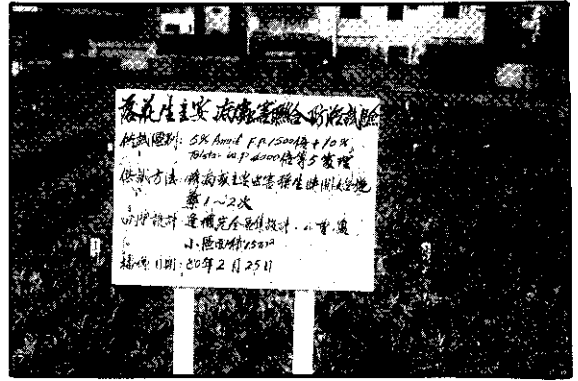 落花生主要病蟲害聯合防治試驗
供試區別:5% Anvil F.P. 1500倍+10%
Talstar w.p 4000倍等5處理
供試方法:病害主要蟲害發生時開始施
藥1~2次
設計:逢機完全區集設計,
小區面積15m²
播種日期:80年2月25日